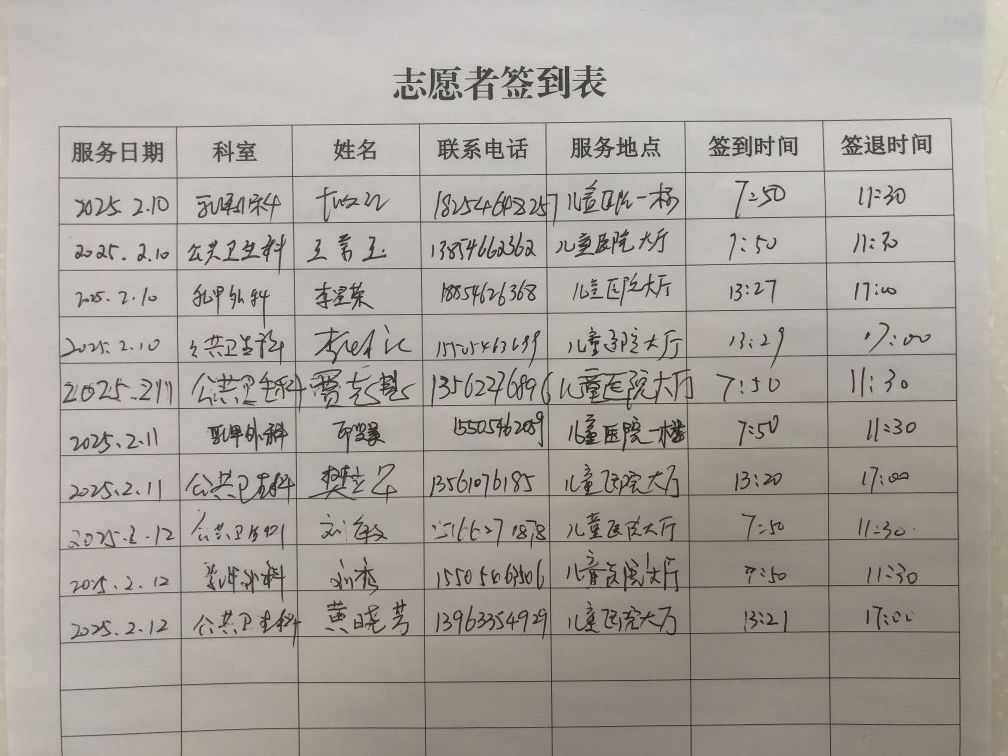 志愿者签到表
服务日期 科室 姓名 联系电话 服务地点 签到时间 签退时间
2025.2.10 乳甲外科 18254648257 儿童医院一楼 7:50 11:30
2025.2.10 公共卫生科 13854662362 儿童医院大厅 7:50 11:30
2025.2.10 乳甲外科 李星荣 18854626368 儿童医院大厅 13:27 17:00
2025.2.10 公共卫生科 儿童医院大厅 13:29 17:00
2025.2.11 公共卫生科 13562276896 儿童医院大厅 7:50 11:30
2025.2.11 乳甲外科 15505462059 儿童医院一楼 7:50 11:30
2025.2.11 公共卫生科 13561076185 儿童医院大厅 13:20 17:00
2025.2.12 公共卫生科 刘海敏 儿童医院大厅 7:50 11:30
2025.2.12 乳甲外科 刘杰 儿童医院大厅 7:50 11:30
2025.2.12 公共卫生科 黄晓芳 13963354929 儿童医院大厅 13:21 17:00